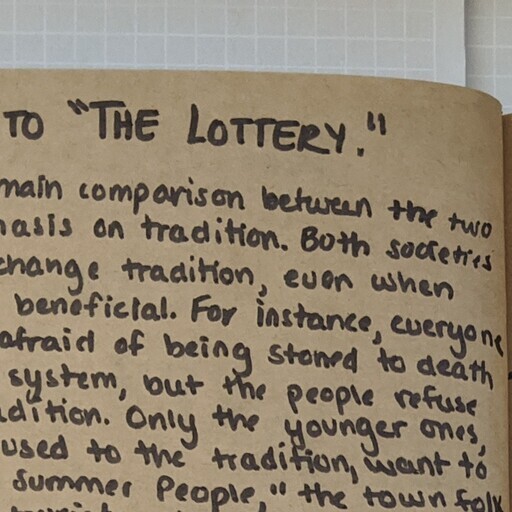 TO "THE LOTTERY."
main comparison between the two
hasis on tradition. Both societies
change tradition, even when
beneficial. For instance, everyone
afraid of being stoned to death
system, but the people refuse
dition. Only the younger ones,
used to the tradition, want to
summer People," the town folk